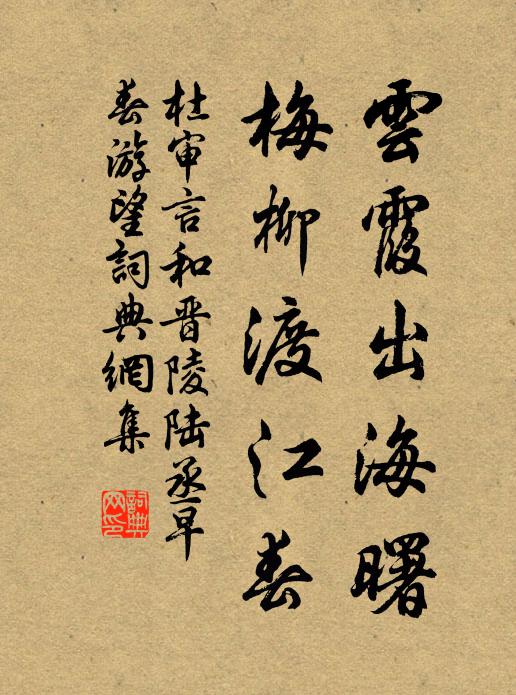 雲霞出海曙
梅柳渡江春
杜审言和晋陵陆丞早
春游望詞典網集
詞典
网印